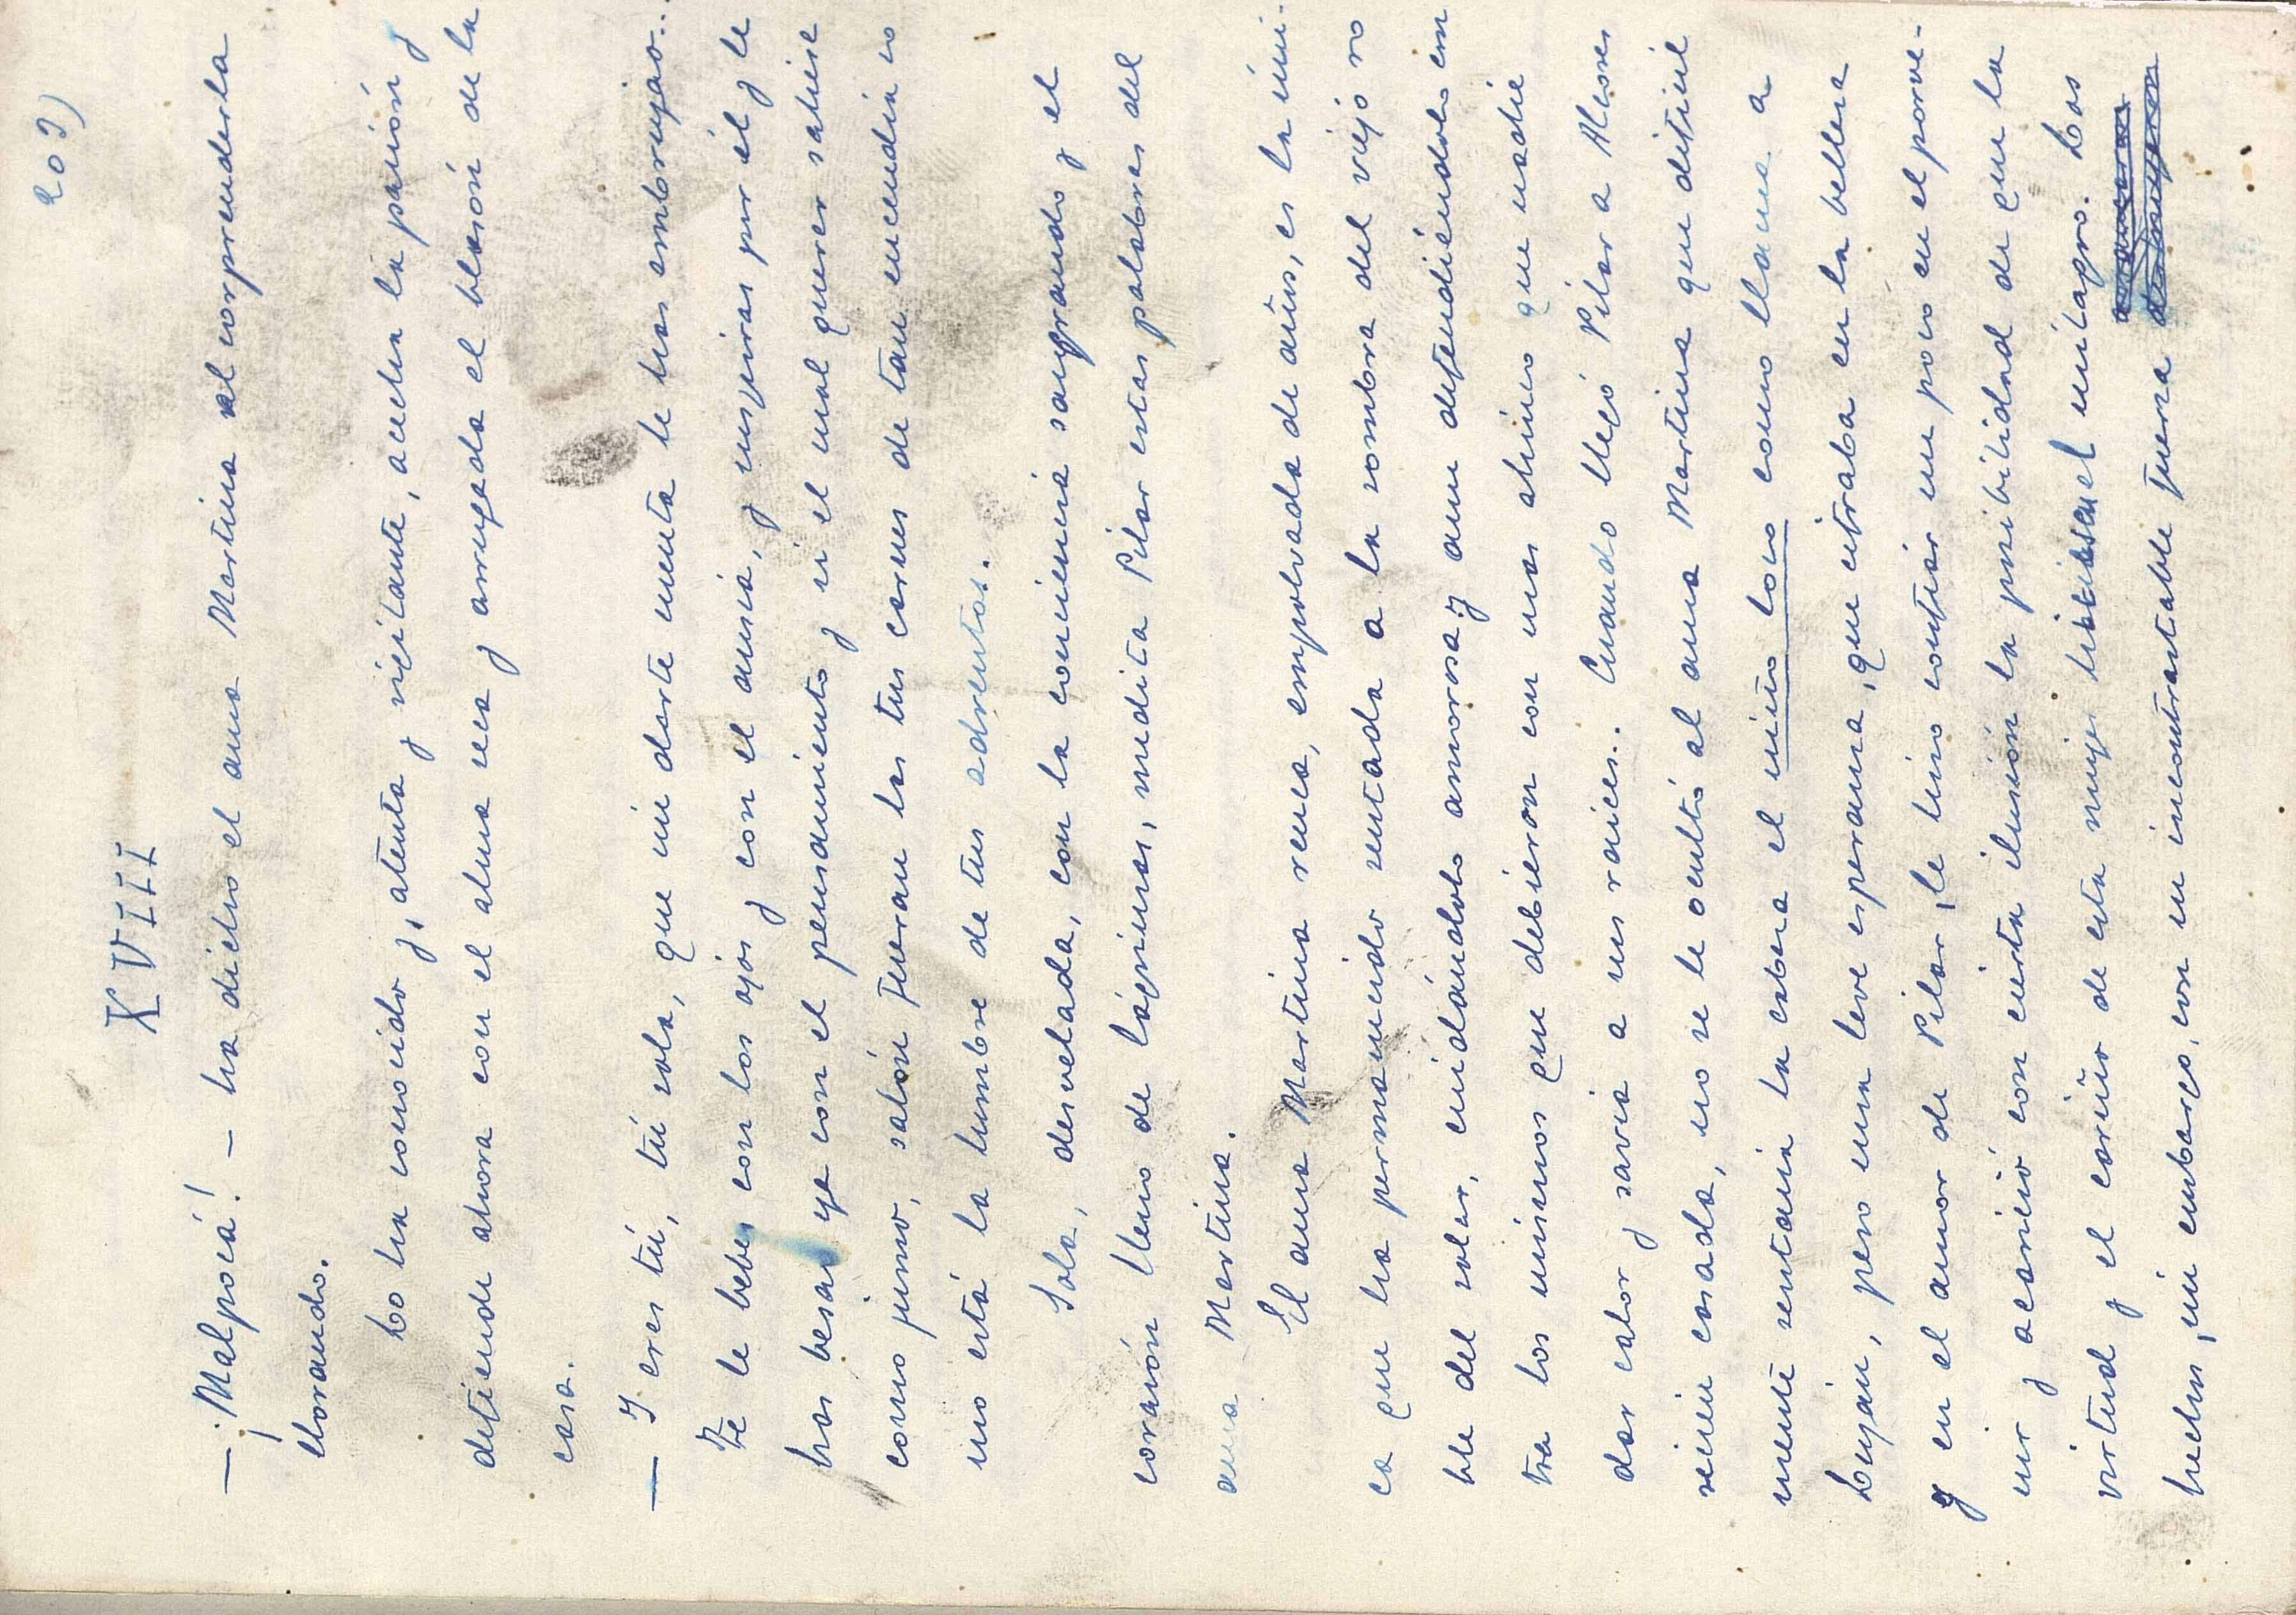 209)
XVIII
— ¡Malpocá! – ha dicho el ama Martina al sorprenderla
llorando.
Lo ha conocido y, atenta y vigilante, acecha la pasión y
defiende ahora con el alma seca y arrugada el blasón de la
casa.
— Y eres tú, tú sola, que sin darte cuenta le has embrujao..
Te le bebes con los ojos y con el ansia, y suspiras por él y le
has besao ya con el pensamiento y si el mal querer saliese
como jumo, salón fueran las tus carnes de tan encendía co
mo está la lumbre de tus adrentos.
Sola, desvelada, con la conciencia sangrando y el
corazón lleno de lágrimas, medita Pilar estas palabras del
ama Martina.
El ama Martina renca, empolvada de años, es la úni-
ca que ha permanecido sentada a la sombra del viejo ro
ble del solar, cuidándolo amorosa y aun defendiéndolo con
tra los mismos que debieron con mas ahinco que nadie
dar calor y savia a sus raices.. Cuando llegó Pilar a Alcores
recien casada, no se le ocultó al ama Martina que dificil
mente sentaría la cabeza el niño loco como llama a
Luján, pero una leve esperanza, que cifraba en la belleza
y en el amor de Pilar, le hizo confiar un poco en el porve-
nir y acarició con cierta ilusión la posibilidad de que la
virtud y el cariño de esta mujer hiciesen el milagro. Los
hechos, sin embargo, con su incontrastable fuerza